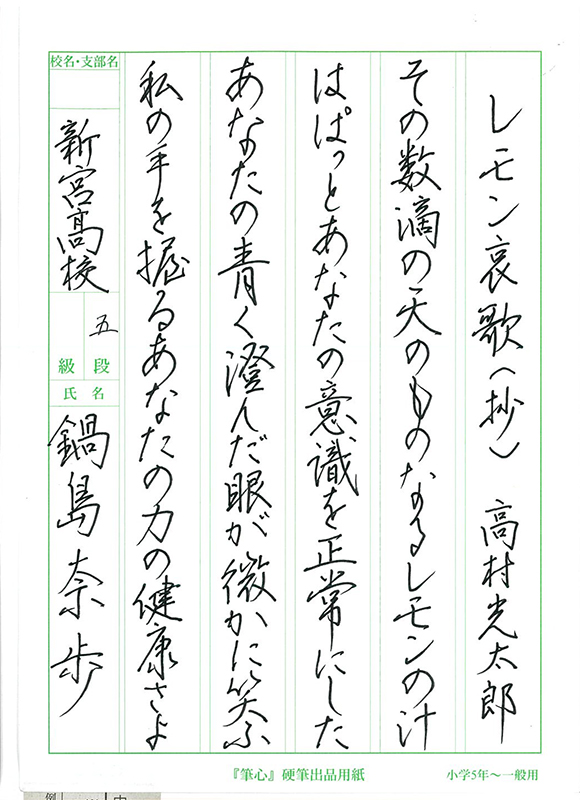 レモン哀歌(抄) 高村光太郎
その数滴の天のものなるレモンの汁
はぱっとあなたの意識を正常にした
あなたの青く澄んだ眼が微かに笑ふ
私の手を握るあなたの力の健康さよ
校名・支部名
新宮高校
五
段
級
氏名
鍋島奈歩
『筆心』硬筆出品用紙
小学5年~一般用